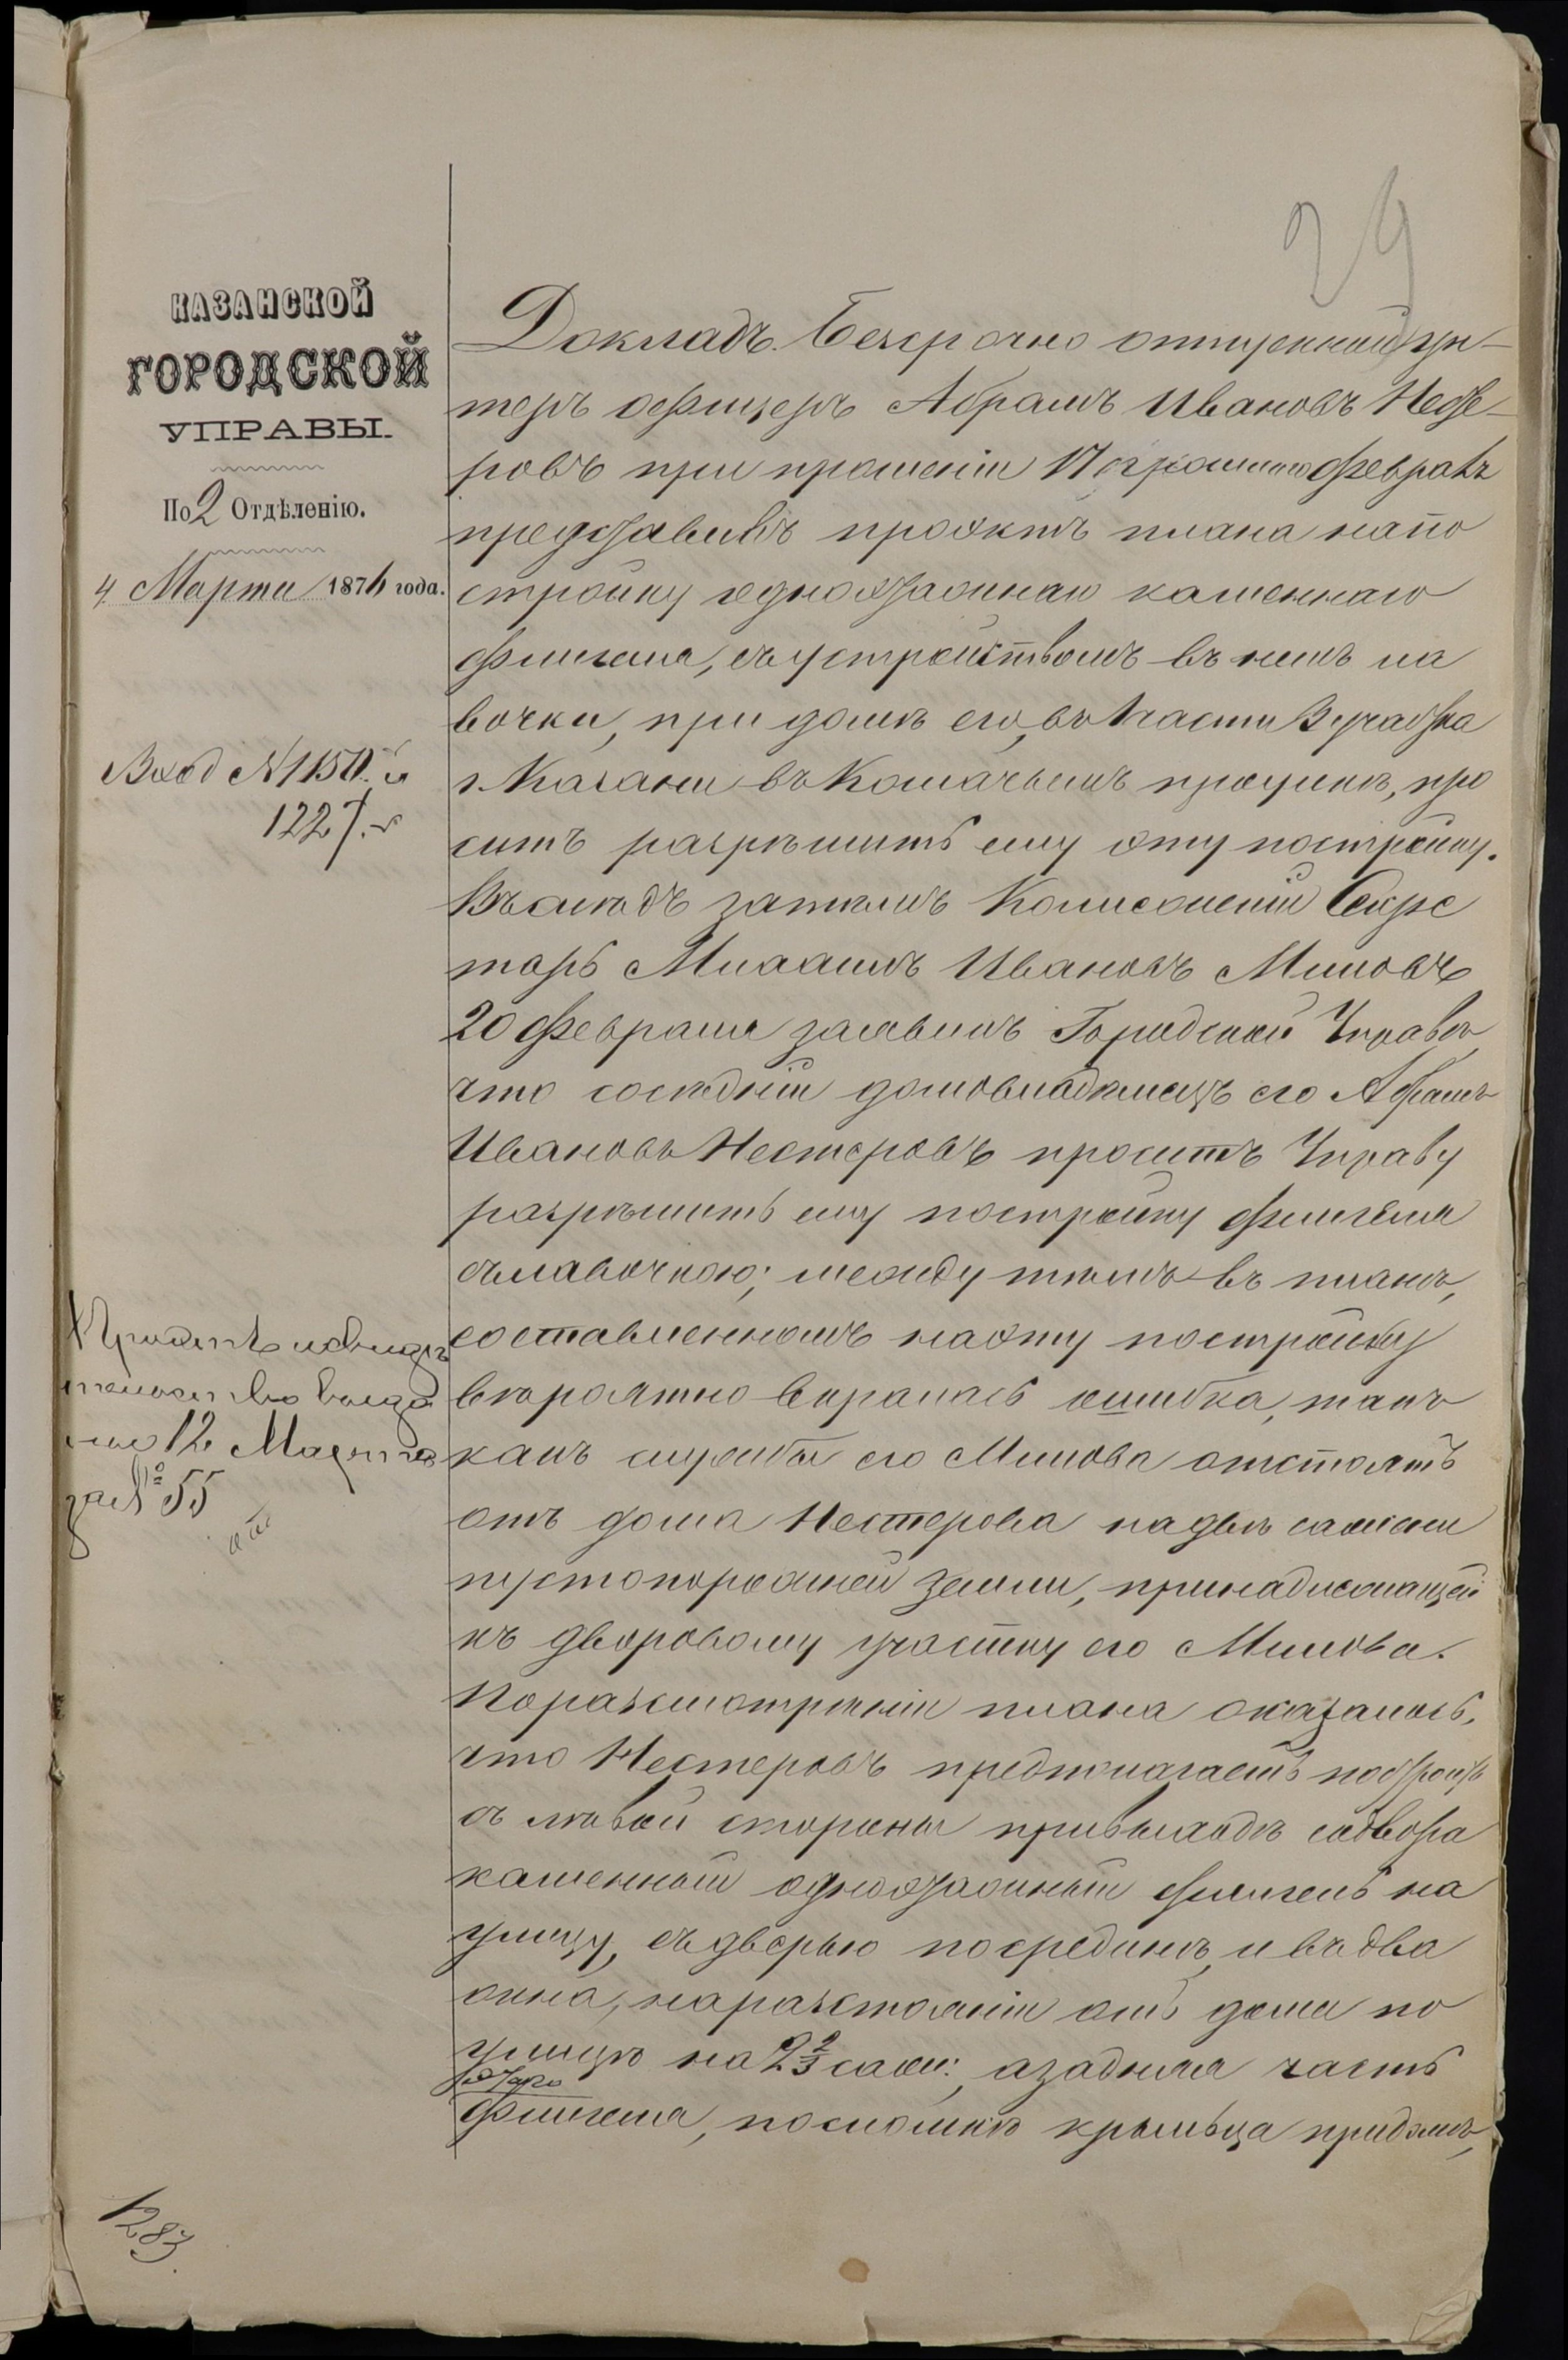 29
КАЗАНСКОЙ
ГОРОДСКОЙ
УПРАВЫ.
По 2 Отдѣленію.
4 Марта 1876 года.
Вход №1150. и
1227.
Докладъ. Безсрочно отпускной ун-
теръ офицеръ Абрамъ Ивановъ Несте-
ровъ при прошеніи 17 прошлаго февраля
представивъ проэктъ плана на по
стройку одноэтажнаго каменнаго
флигеля, съ устройствомъ въ немъ ла
вочки, при домѣ его, въ 1 части 3 участка
г. Казани въ Кошачьемъ проулкѣ, про
ситъ разрѣшить ему эту постройку.
Въ слѣдъ затѣмъ Колежскій Секре
тарь Михаилъ Ивановъ Миловъ
20 февраля заявилъ Городской Управѣ,
что сосѣдній домовладѣлецъ его Абрамъ
Ивановъ Нестеровъ проситъ Управу
разрѣшить ему постройку флигеля
съ лавочкою; между тѣмъ въ планѣ,
составленномъ на эту постройку
вѣроятно вкралась ошибка, такъ
какъ службы его Милова отстоятъ
отъ дома Нестерова на двѣ сажени
пустопорожней земли, принадлежащей
къ дворовому участку его Милова.
По разсмотрѣніи плана оказалось,
что Нестеровъ предполагаетъ построить
съ лѣвой стороны при въѣздѣ со двора
каменный одноэтажный флигель на
улицу, съ дверью по срединѣ и въ два
окна, на разстояніи отъ дома по
улицѣ на 2 2/3 саж:, а задняя часть
этаго
флигеля, по сломкѣ крыльца при домѣ,
свидѣ
тельство выда
но 12 Марта
за № 55
1283.